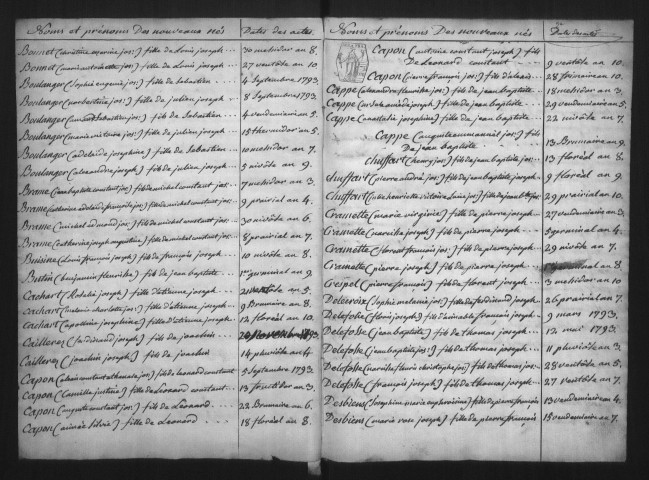 Noms et prénoms Des nouveaux nés Dates des actes.
Bonnet (christine jos:) fille de Louis joseph 30 messidor an 8.
Bonnet (marie antoinette jos:) fille de Louis joseph 27 ventôse an 10.
Boulanger (Sophie eugenie jos:) fille de Sébastien 4 Septembre 1793.
Boulanger (jos:) fille de julien joseph 8 Septembre 1793.
Boulanger (Sébastien jos:) fils de Sébastien 4 vendemiaire an 5.
Boulanger (marie victoire jos:) fille de Sébastien 15 thermidor an 5.
Boulanger (adelaide josephine) fille de Sébastien 10 messidor an 7.
Boulanger (alexandre joseph) fils de julien joseph 5 nivôse an 9.
Brame (constant jos:) fils de michel constant jos: 7 messidor an 3.
Brame (catherine adelaide françoise) fille de michel constant jos: 9 prairial an 4.
Brame (michel edmond jos:) fils de michel constant jos: 30 nivôse an 6.
Brame (catherine joseph augustine) fille de michel constant 8 prairial an 7.
Buisine (Louis françois joseph) fils de françois joseph 10 nivôse an 8.
Butin (benjamin fleuriska) fils de jean baptiste 1er germinal an 9.
Cachart (Rosalie joseph) fille d'étienne joseph an 5.
Cachart (melanie charlotte jos:) fille d'étienne joseph 9 Brumaire an 8.
Cachart (apolline josephine) fille d'étienne joseph 12 floréal an 10.
Caillerez (ferdinand joseph) fils de joachim 20 Novemb. 1793.
Caillerez (joachim joseph) fils de joachim 14 pluviôse an 4.
Capon (jos:) fils de Léonard constant 5 Septembre 1793.
Capon (Camille justine) fille de Léonard constant 13 fructidor an 3.
Capon (auguste constant jos:) fils de Léonard 22 Brumaire an 6.
Capon (aimée silvie) fille de Léonard 18 floréal an 8.
Noms et prénoms Des nouveaux nés Dates des actes
Capon (antoine constant joseph) fils
De Léonard constant 9 ventôse an 10.
Capon (pierre françois jos:) fils 28 frimaire an 10.
Cappe (alexandre fleuriska jos:) fils de jean baptiste 18 messidor an 3.
Cappe (joseph) fils de jean baptiste 29 vendemiaire an 5.
Cappe (anastasie josephine) fille de jean baptiste 22 nivôse an 7.
Cappe (auguste emmanuel jos:) fils
De jean baptiste 13 Brumaire an 9.
Chuffart (henry jos:) fils de jean baptiste jos: 13 floréal an 8.
Chuffart (pierre andré jos:) fils de jean baptiste joseph 9 floréal an 9.
Chuffart (henriette victoire jos:) fille de jean baptiste jos: 29 prairial an 10.
Cramette (marie virginie) fille de pierre joseph 27 vendemiaire an 3.
Cramette (joseph) fils de pierre joseph 5 germinal an 4.
Cramette (florent françois jos:) fils de pierre joseph 29 nivôse an 7.
Cramette (pierre joseph) fils de pierre joseph germinal an 8.
Crespel (pierre françois) fils de florent joseph 3 messidor an 10.
Delecroix (Sophie melanie jos:) fille de ferdinand joseph 26 prairial an 7.
Delefosse (floris joseph) fils d'aimable françois joseph 9 mars 1793.
Delefosse (jean baptiste) fils de thomas joseph 12 mai 1793.
Delefosse (jean baptiste jos:) fils de thomas joseph 11 pluviôse an 3.
Delefosse (fleuris christophe jos:) fils de thomas joseph 28 ventôse an 5.
Delefosse (françois joseph) fils de thomas joseph 27 ventôse an 7.
Desbiens (Josephine marie euphroisine) fille de pierre françois 13 vendemiaire an 4.
Desbiens (marie rose joseph) fille de pierre françois 15 vendemiaire an 7.